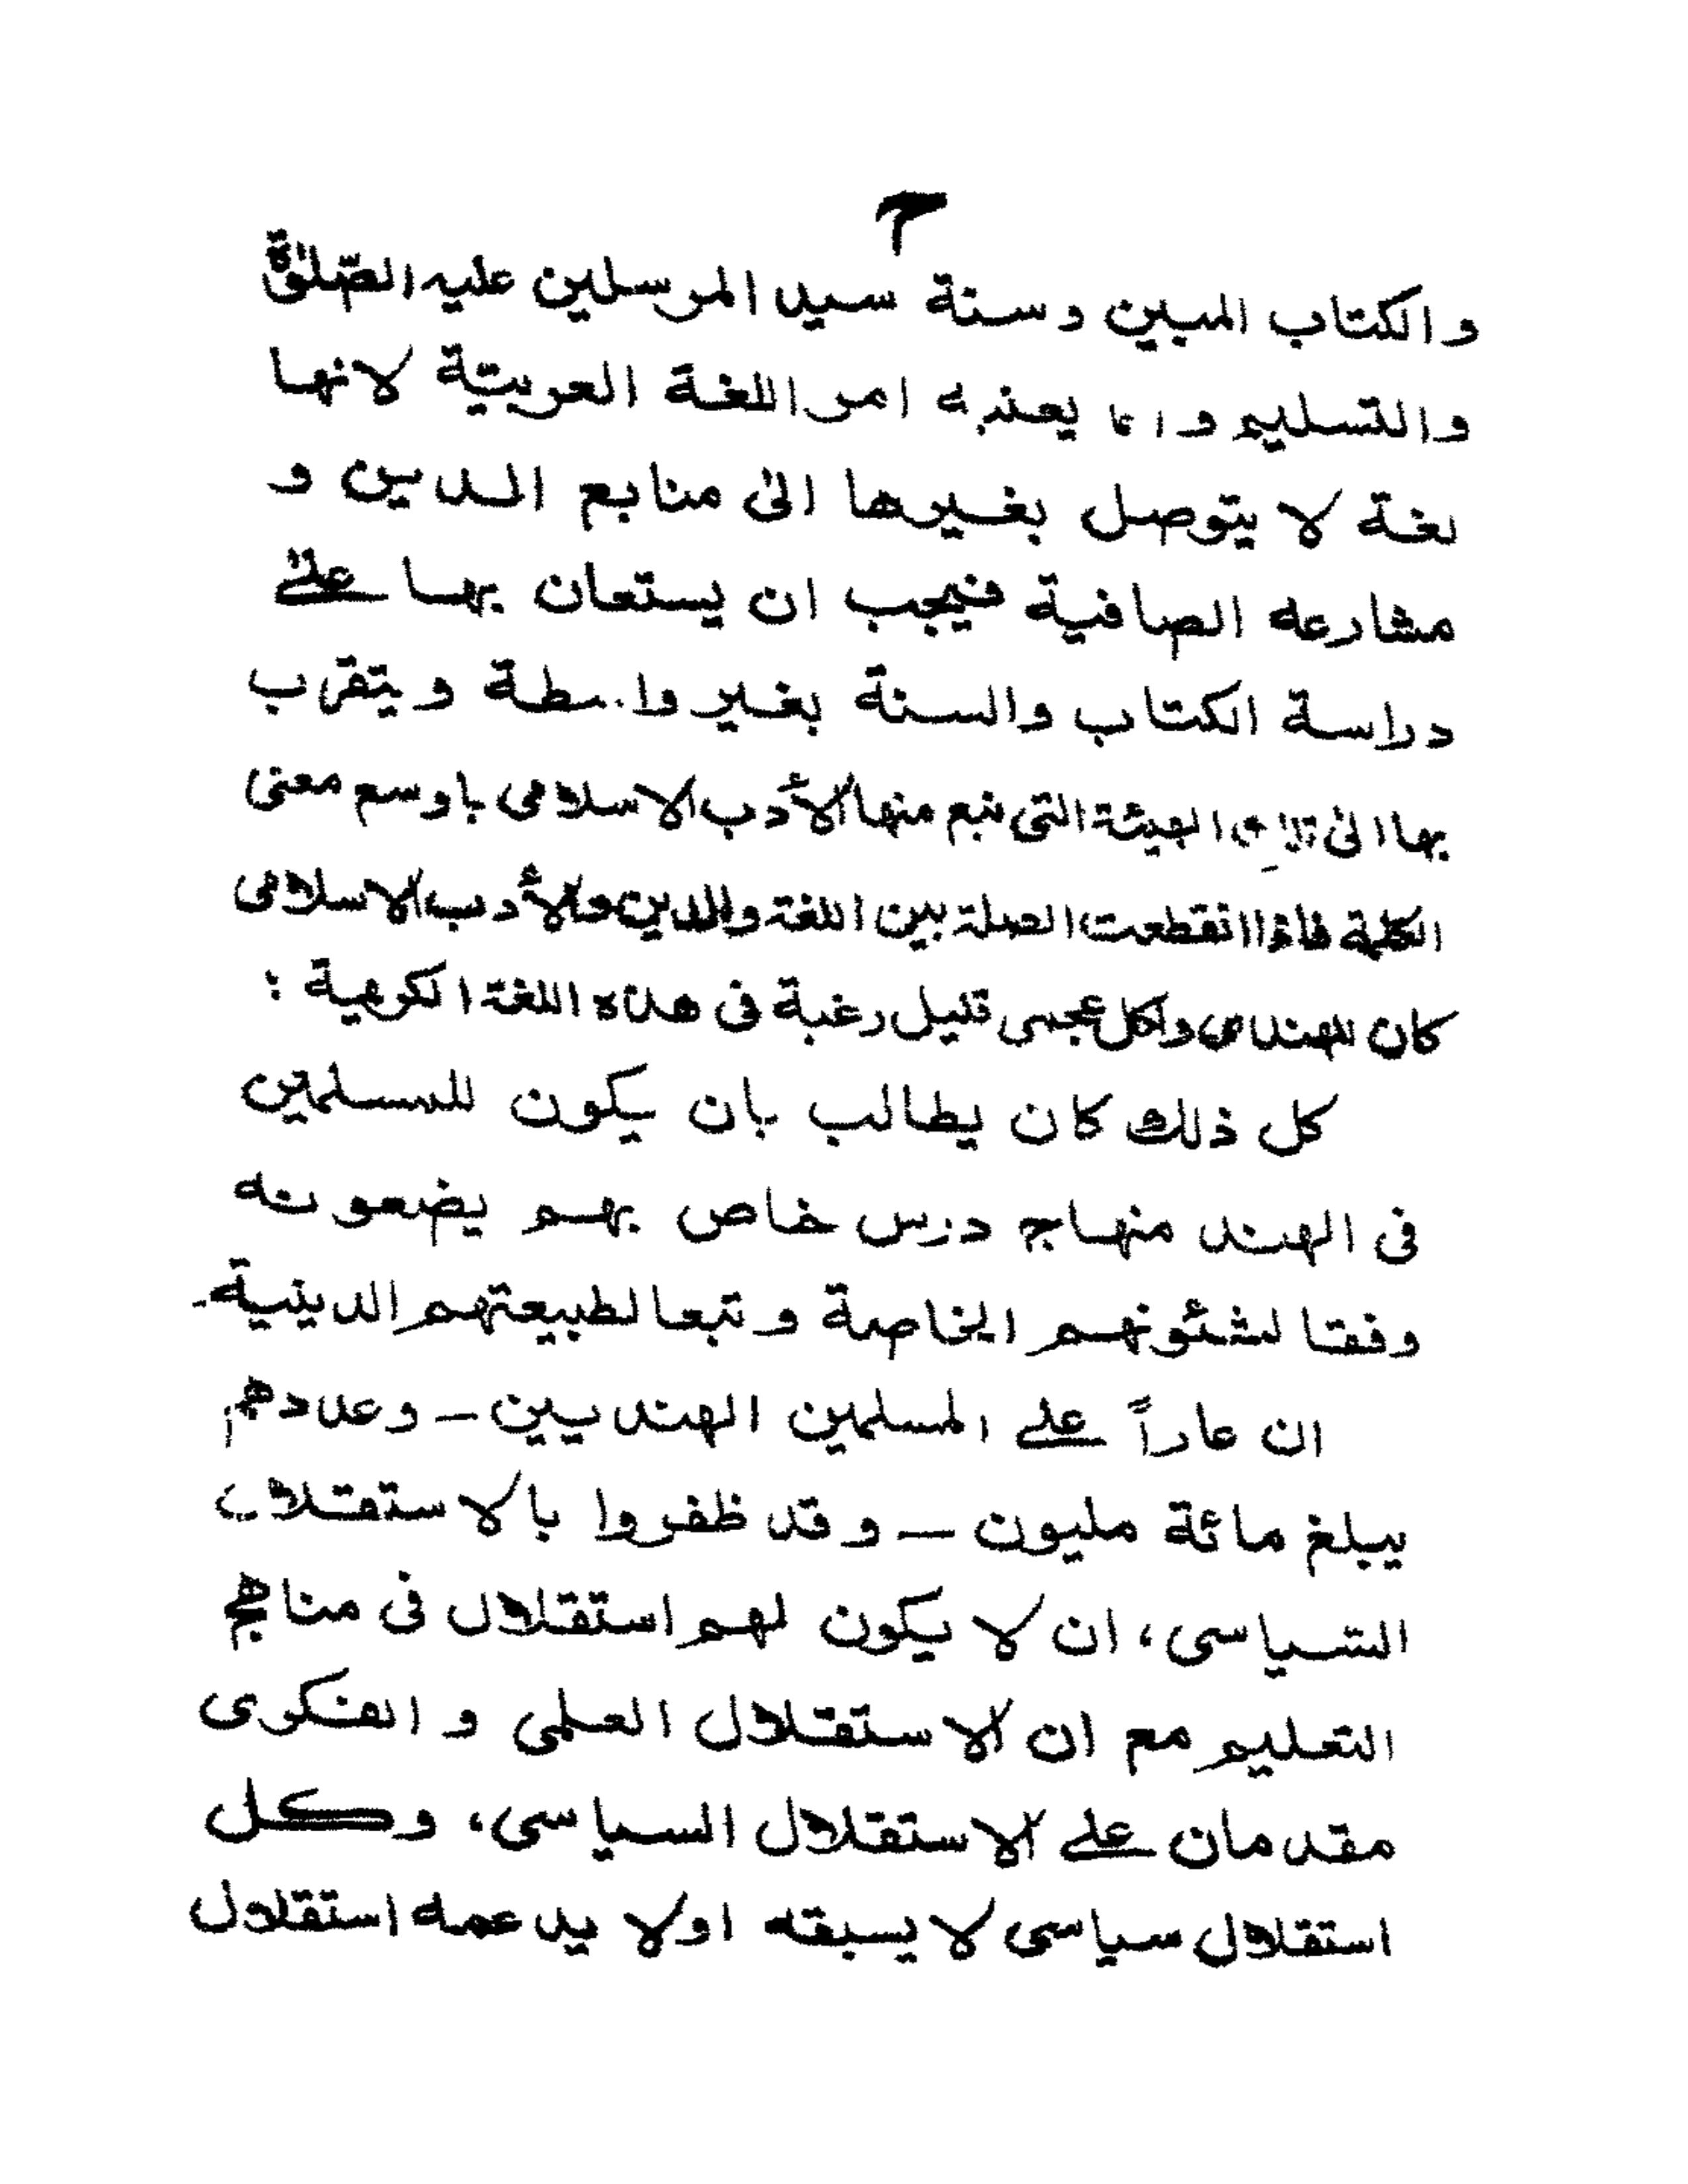 والكتاب المبين وسنة سيد المرسلين عليه الصّلٰوة
والتسليم وانما يعنيه امر اللغة العربيّة لانها
لغة لا يتوصل بغيرها الىٰ منابع الدين و
مشارعه الصافية فيجب ان يستعان بها علىٰ
دراسة الكتاب والسنة بغير واسطة ويتقرب
بها الىٰ تلك البيئة التى نبع منها الأدب الاسلامى باوسع معنى
الكلمة فاذا انقطعت الصلة بين اللغة والدين والأدب الاسلامى
كان للهندى ولكل عجمى قليل رغبة فى هذه اللغة الكريمة :
كل ذلك كان يطالب بان يكون للمسلمين
فى الهند منهاج درس خاص بهم يضعونه
وفقا لشئونهم الخاصة وتبعا لطبيعتهم الدينية۔
ان عاراً على المسلمين الهنديين – وعددهم
يبلغ مائة مليون – وقد ظفروا بالاستقلال
السّياسى، ان لا يكون لهم استقلال فى مناهج
التعليم مع ان الاستقلال العلمى و الفكرى
مقدمان على الاستقلال السياسى، وكل
استقلال سياسى لا يسبقه اولا يدعمه استقلال